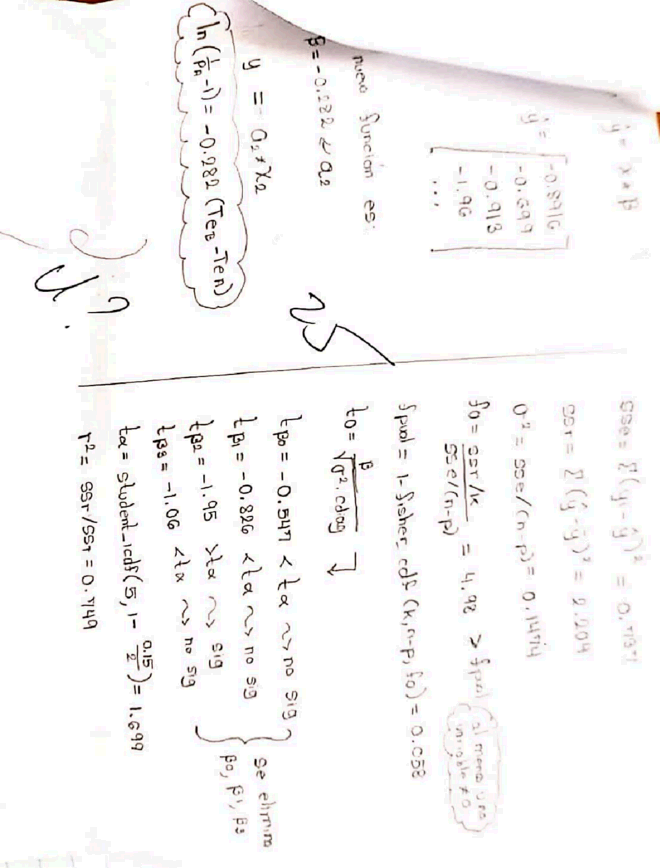 ŷ = x * β
ŷ = [-0.8916
-0.699
-0.913
-1.96
...]
nueva función es:
β = -0.282 ↵ a2
y = a2 * x2
ln (1/PA - 1) = -0.282 (TeB - TeA)
25
sse = Σ(y - ŷ)² = 0.737
ssr = Σ(ŷ - ȳ)² = 2.209
σ² = sse/(n-p) = 0.1474
f0 = (ssr/k)/(sse/(n-p)) = 4.92 > fpval
al menos una variable ≠ 0
fpval = 1 - fisher_cdf (k, n-p, f0) = 0.058
t0 = β/√(σ² · cdiag) ↴
tβ0 = -0.547 < tα ~> no sig
tβ1 = -0.826 < tα ~> no sig
tβ2 = -1.95 > tα ~> sig
tβ3 = -1.06 < tα ~> no sig
} se elimina
β0, β1, β3
tα = student_icdf(5, 1 - 0.15/2) = 1.699
r² = ssr/ssT = 0.749